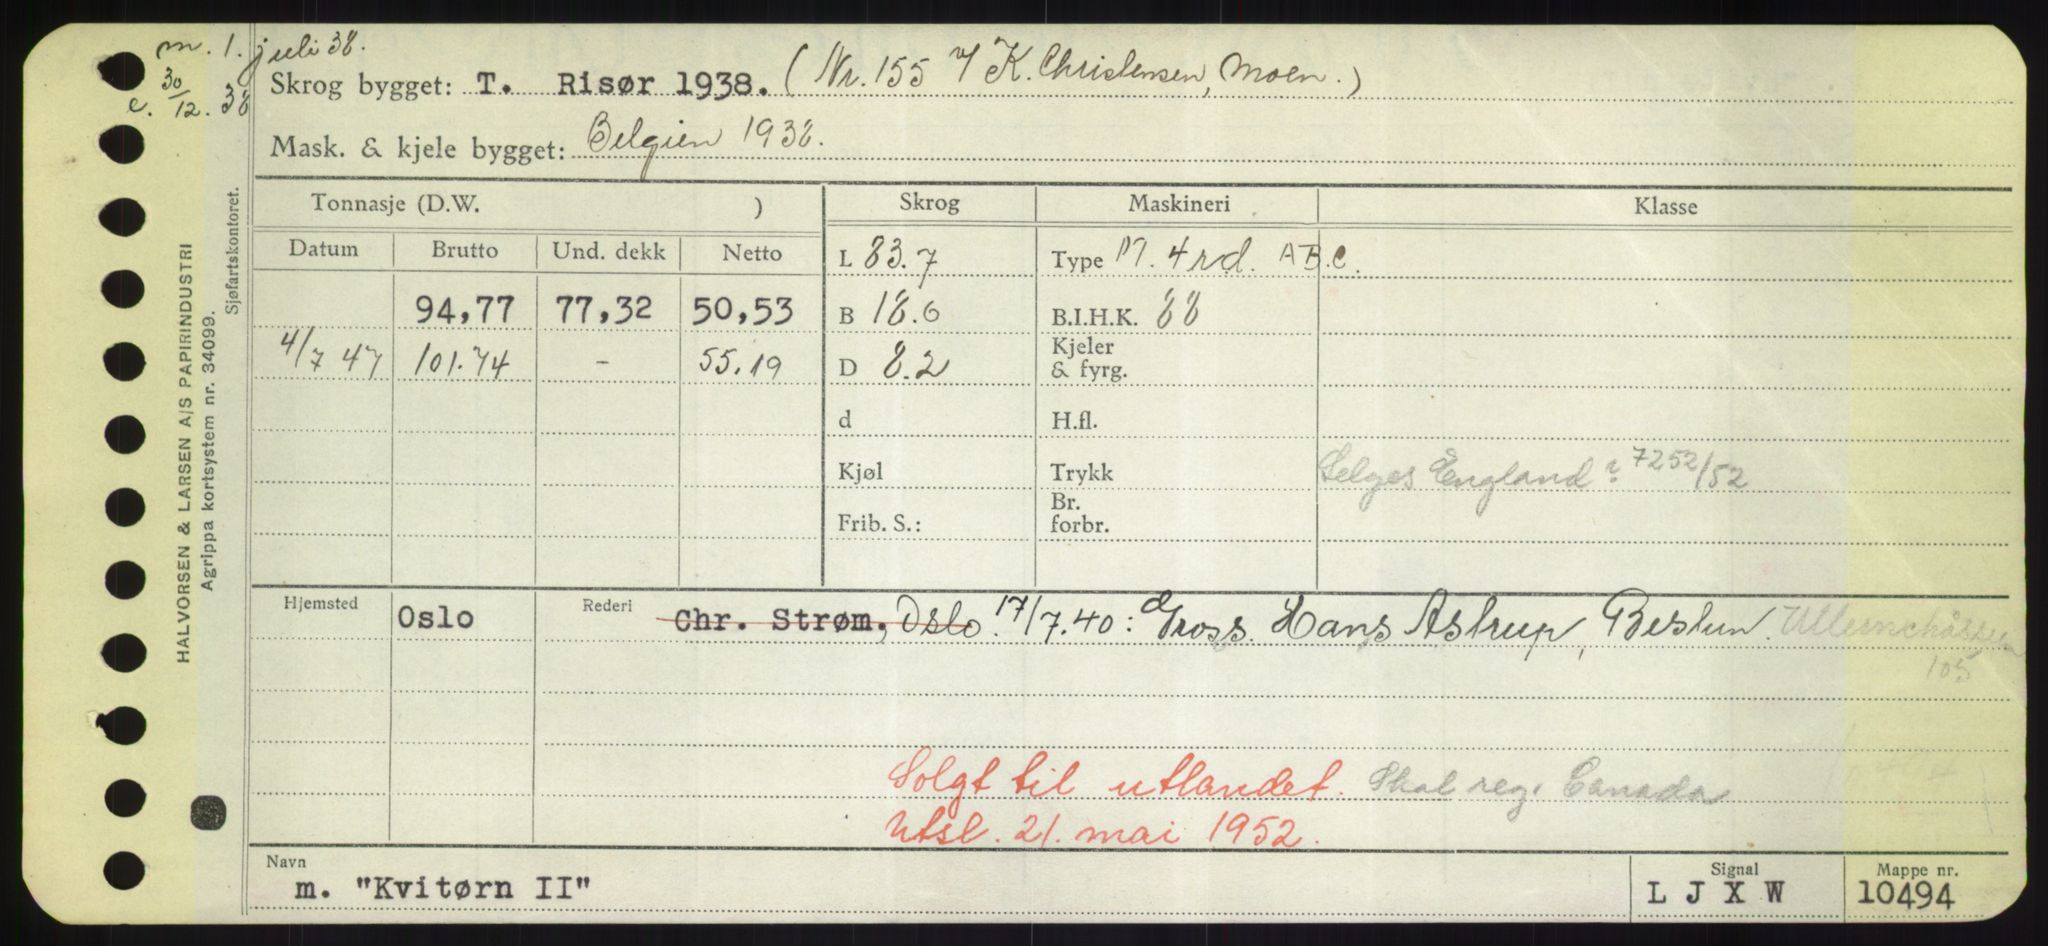 m. 1. juli 38.
e. 30/12. 38
Skrog bygget: T. Risør 1938. (Nr. 155 v/ K. Christensen, Moen.)
Mask. & kjele bygget: Belgien 1938.
HALVORSEN & LARSEN A/S PAPIRINDUSTRI
Agrippa kortsystem nr. 34099.
Sjøfartskontoret.
Tonnasje (D.W. ) Skrog Maskineri Klasse
Datum Brutto Und. dekk Netto L 83.7 Type M. 4rd. A.B.C.
94,77 77,32 50,53 B 18.6 B.I.H.K. 88
4/7 47 101.74 - 55.19 D 8.2 Kjeler & fyrg.
d H.fl.
Kjøl Trykk Selges England ? 7252/52
Frib. S.: Br. forbr.
Hjemsted Oslo Rederi Chr. Strøm, Oslo. 17/7.40: Gross. Hans Astrup, Bestun. Ullernchåsseen
105
Solgt til utlandet. Skal reg. Canada
Utsl. 21. mai 1952.
Navn m. "Kvitørn II" Signal L J X W Mappe nr. 10494